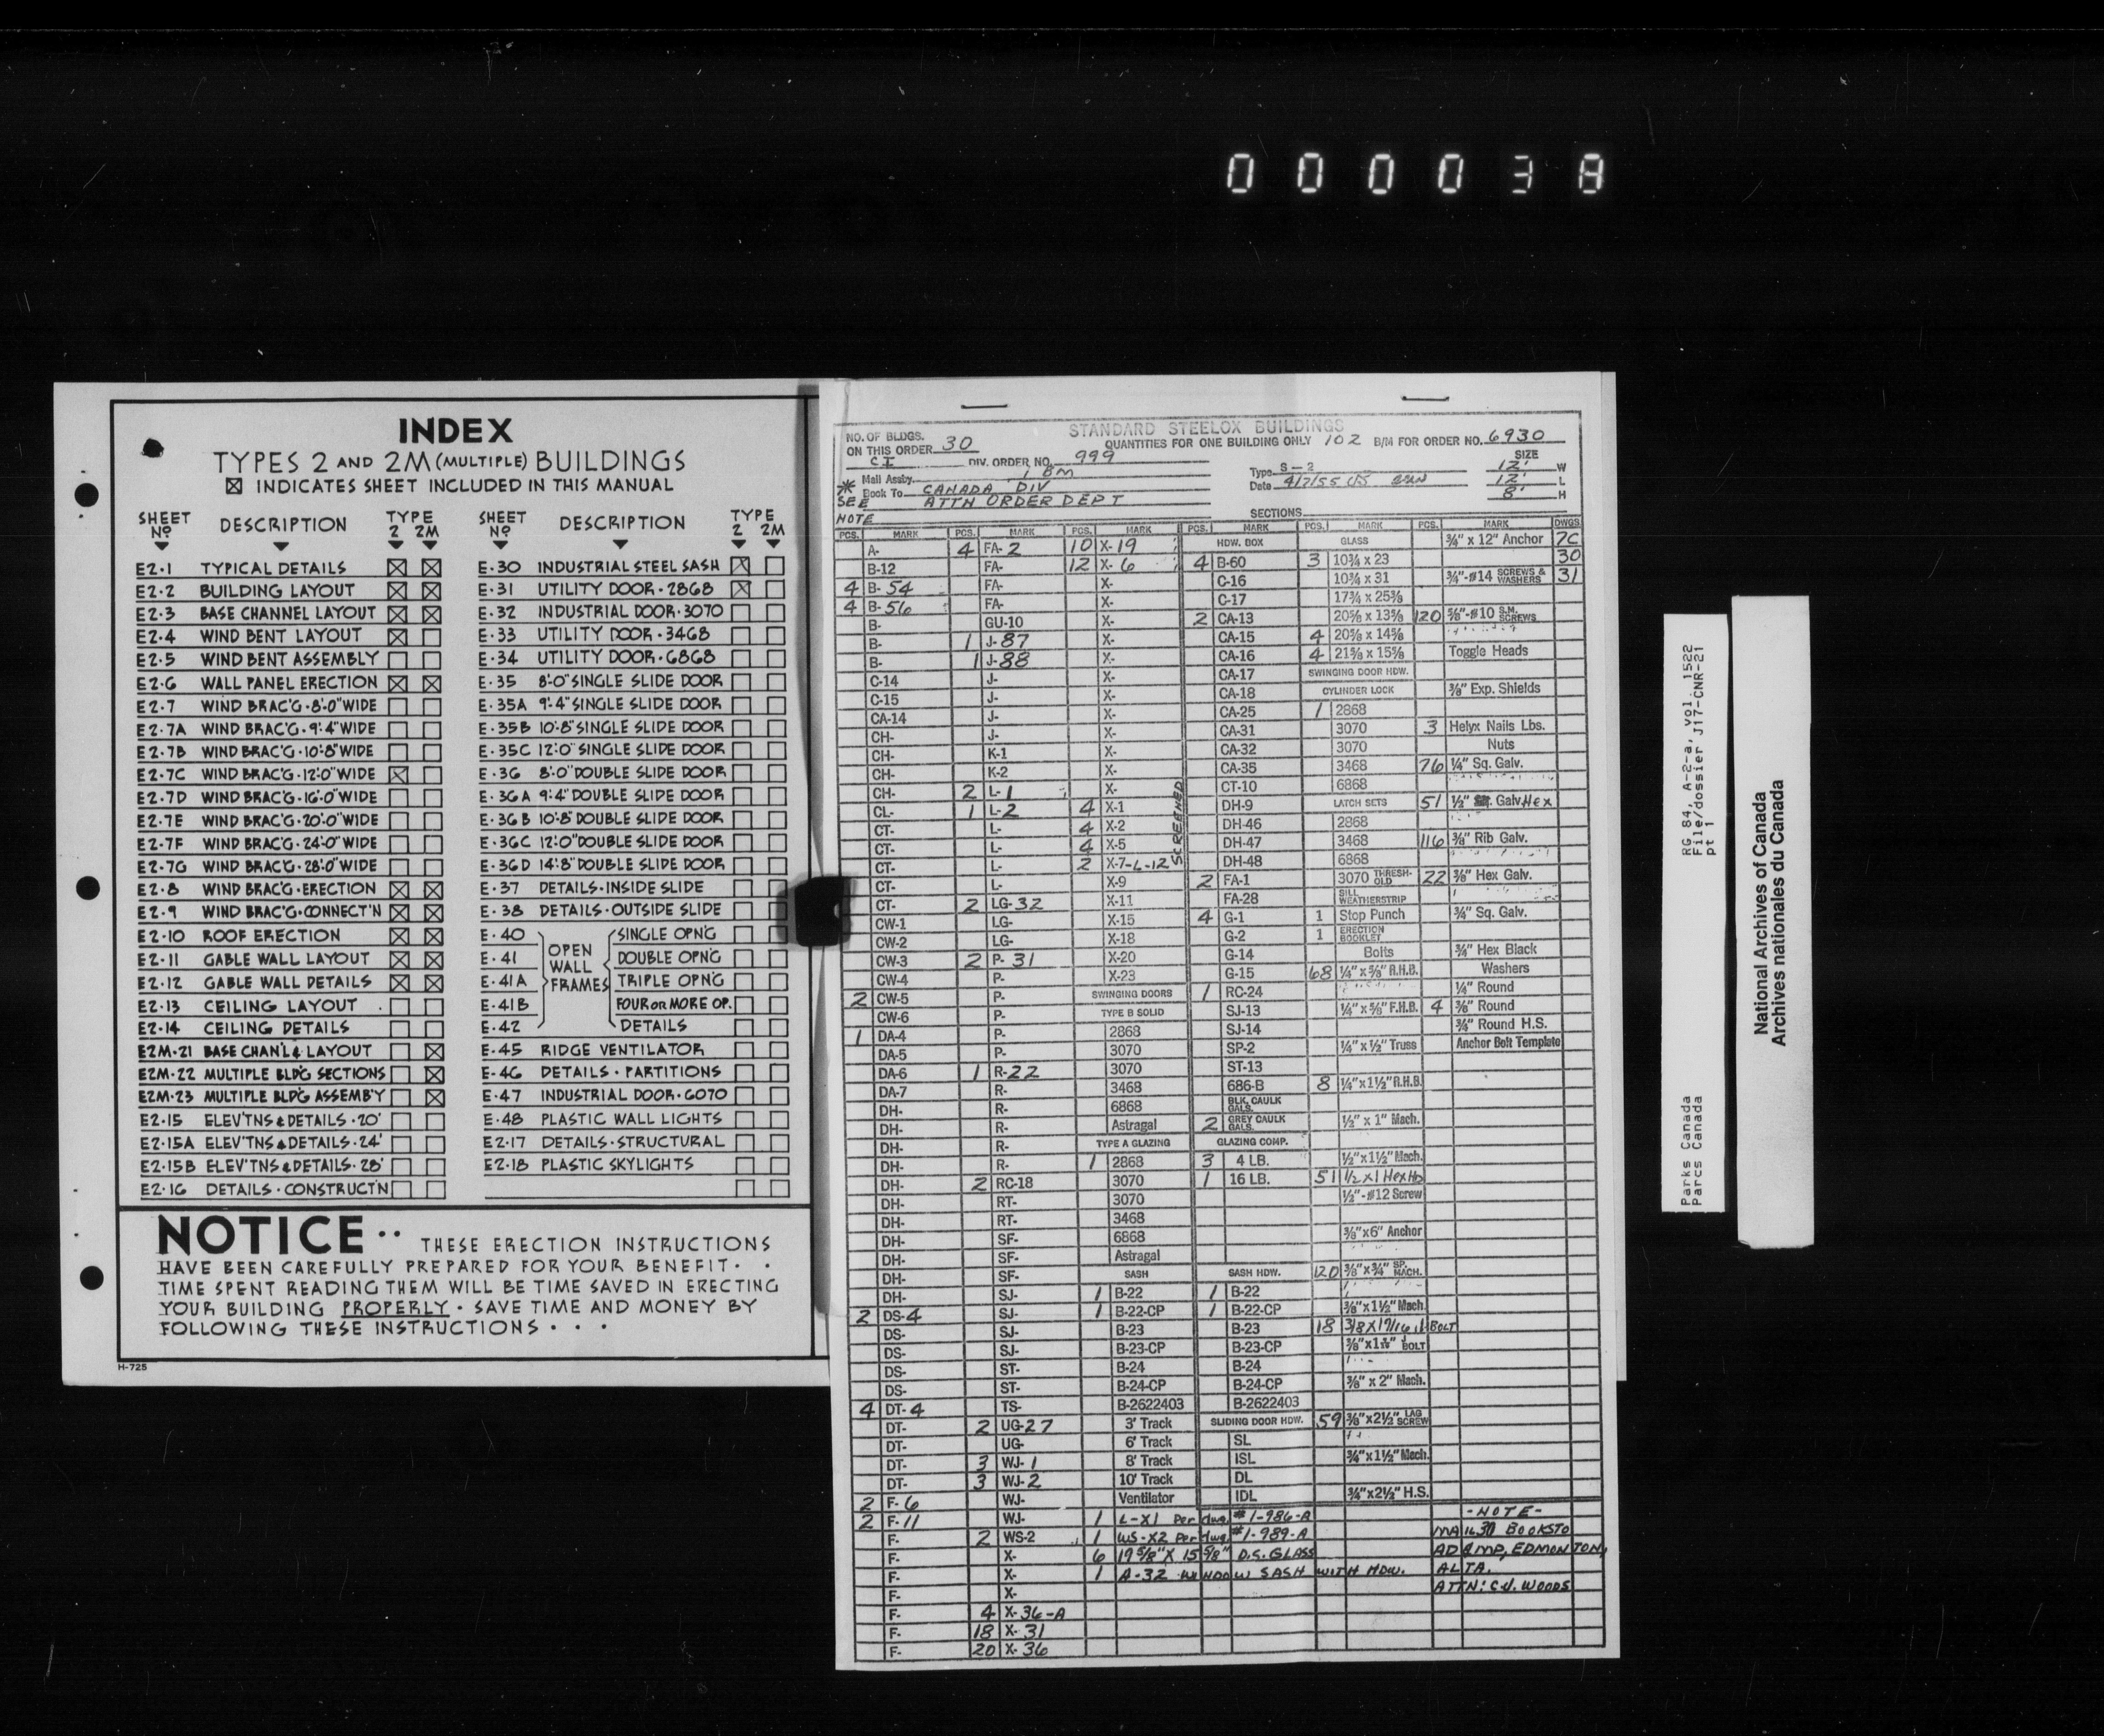 000038
INDEX
TYPES 2 AND 2M (MULTIPLE) BUILDINGS
☒ INDICATES SHEET INCLUDED IN THIS MANUAL
SHEET Nº DESCRIPTION TYPE 2 2M
E2·1 TYPICAL DETAILS ☒ ☒
E2·2 BUILDING LAYOUT ☒ ☒
E2·3 BASE CHANNEL LAYOUT ☒ ☒
E2·4 WIND BENT LAYOUT ☒ ☐
E2·5 WIND BENT ASSEMBLY ☐ ☐
E2·6 WALL PANEL ERECTION ☒ ☒
E2·7 WIND BRAC'G·8'·0" WIDE ☐ ☐
E2·7A WIND BRAC'G·9'·4" WIDE ☐ ☐
E2·7B WIND BRAC'G·10'·8" WIDE ☐ ☐
E2·7C WIND BRAC'G·12'·0" WIDE ☒ ☐
E2·7D WIND BRAC'G·16'·0" WIDE ☐ ☐
E2·7E WIND BRAC'G·20'·0" WIDE ☐ ☐
E2·7F WIND BRAC'G·24'·0" WIDE ☐ ☐
E2·7G WIND BRAC'G·28'·0" WIDE ☐ ☐
E2·8 WIND BRAC'G·ERECTION ☒ ☒
E2·9 WIND BRAC'G·CONNECT'N ☒ ☒
E2·10 ROOF ERECTION ☒ ☒
E2·11 GABLE WALL LAYOUT ☒ ☒
E2·12 GABLE WALL DETAILS ☒ ☒
E2·13 CEILING LAYOUT ☐ ☐
E2·14 CEILING DETAILS ☐ ☐
E2M·21 BASE CHAN'L & LAYOUT ☐ ☒
E2M·22 MULTIPLE BLD'G SECTIONS ☐ ☒
E2M·23 MULTIPLE BLD'G ASSEMB'Y ☐ ☒
E2·15 ELEV'TNS & DETAILS·20' ☐ ☐
E2·15A ELEV'TNS & DETAILS·24' ☐ ☐
E2·15B ELEV'TNS & DETAILS·28' ☐ ☐
E2·16 DETAILS·CONSTRUCT'N ☐ ☐
SHEET Nº DESCRIPTION TYPE 2 2M
E·30 INDUSTRIAL STEEL SASH ☒ ☐
E·31 UTILITY DOOR·2868 ☒ ☐
E·32 INDUSTRIAL DOOR·3070 ☐ ☐
E·33 UTILITY DOOR·3468 ☐ ☐
E·34 UTILITY DOOR·6868 ☐ ☐
E·35 8'·0" SINGLE SLIDE DOOR ☐ ☐
E·35A 9'·4" SINGLE SLIDE DOOR ☐ ☐
E·35B 10'·8" SINGLE SLIDE DOOR ☐ ☐
E·35C 12'·0" SINGLE SLIDE DOOR ☐ ☐
E·36 8'·0" DOUBLE SLIDE DOOR ☐ ☐
E·36A 9'·4" DOUBLE SLIDE DOOR ☐ ☐
E·36B 10'·8" DOUBLE SLIDE DOOR ☐ ☐
E·36C 12'·0" DOUBLE SLIDE DOOR ☐ ☐
E·36D 14'·8" DOUBLE SLIDE DOOR ☐ ☐
E·37 DETAILS·INSIDE SLIDE ☐ ☐
E·38 DETAILS·OUTSIDE SLIDE ☐ ☐
OPEN WALL FRAMES
E·40 SINGLE OPN'G ☐ ☐
E·41 DOUBLE OPN'G ☐ ☐
E·41A TRIPLE OPN'G ☐ ☐
E·41B FOUR OR MORE OP. ☐ ☐
E·42 DETAILS ☐ ☐
E·45 RIDGE VENTILATOR ☐ ☐
E·46 DETAILS · PARTITIONS ☐ ☐
E·47 INDUSTRIAL DOOR·6070 ☐ ☐
E·48 PLASTIC WALL LIGHTS ☐ ☐
E2·17 DETAILS·STRUCTURAL ☐ ☐
E2·18 PLASTIC SKYLIGHTS ☐ ☐
NOTICE ·· THESE ERECTION INSTRUCTIONS
HAVE BEEN CAREFULLY PREPARED FOR YOUR BENEFIT · ·
TIME SPENT READING THEM WILL BE TIME SAVED IN ERECTING
YOUR BUILDING PROPERLY · SAVE TIME AND MONEY BY
FOLLOWING THESE INSTRUCTIONS · · ·
H-725
STANDARD STEELOX BUILDINGS
NO. OF BLDGS. ON THIS ORDER 30
QUANTITIES FOR ONE BUILDING ONLY 102 B/M FOR ORDER NO. 6930
CI DIV. ORDER NO. 999
SIZE
Type S-2 12' W
Mail Assby. 1 BM
Date 4/7/55 12' L
Book To CANADA DIV 8' H
* SEE NOTE
ATTN ORDER DEPT
SECTIONS
PCS. MARK
A-
B-12
4 B-54
4 B-56
B-
B-
B-
C-14
C-15
CA-14
CH-
CH-
CH-
CH-
CL-
CT-
CT-
CT-
CT-
CT-
CW-1
CW-2
CW-3
CW-4
2 CW-5
CW-6
1 DA-4
DA-5
DA-6
DA-7
DH-
DH-
DH-
DH-
DH-
DH-
DH-
DH-
DH-
DH-
DH-
2 DS-4
DS-
DS-
DS-
DS-
4 DT-4
DT-
DT-
DT-
DT-
2 F-6
2 F-11
F-
F-
F-
F-
F-
F-
F-
PCS. MARK
4 FA-2
FA-
FA-
FA-
GU-10
1 J-87
1 J-88
J-
J-
J-
J-
K-1
K-2
2 L-1
1 L-2
L-
L-
L-
L-
2 LG-32
LG-
LG-
2 P-31
P-
P-
P-
P-
P-
1 R-22
R-
R-
R-
R-
R-
2 RC-18
RT-
RT-
SF-
SF-
SF-
SJ-
SJ-
SJ-
SJ-
ST-
ST-
TS-
2 UG-27
UG-
3 WJ-1
3 WJ-2
WJ-
WJ-
2 WS-2
X-
X-
X-
4 X-36-A
18 X-31
20 X-36
PCS. MARK
10 X-19
12 X-6
X-
X-
X-
X-
X-
X-
X-
X-
X-
X-
X-
X-
4 X-1
4 X-2
4 X-5
2 X-7-L-12
X-9
X-11
X-15
X-18
X-20
X-23
SCREENED
SWINGING DOORS
TYPE B SOLID
2868
3070
3070
3468
6868
Astragal
TYPE A GLAZING
1 2868
3070
3070
3468
6868
Astragal
SASH
1 B-22
1 B-22-CP
B-23
B-23-CP
B-24
B-24-CP
B-2622403
3' Track
6' Track
8' Track
10' Track
Ventilator
PCS. MARK
HDW. BOX
4 B-60
C-16
C-17
2 CA-13
CA-15
CA-16
CA-17
CA-18
CA-25
CA-31
CA-32
CA-35
CT-10
DH-9
DH-46
DH-47
DH-48
2 FA-1
FA-28
4 G-1
G-2
G-14
G-15
1 RC-24
SJ-13
SJ-14
SP-2
ST-13
686-B
BLK. CAULK GALS.
2 GREY CAULK GALS.
GLAZING COMP.
3 4 LB.
1 16 LB.
SASH HDW.
1 B-22
1 B-22-CP
B-23
B-23-CP
B-24
B-24-CP
B-2622403
SLIDING DOOR HDW.
SL
ISL
DL
IDL
PCS. MARK
GLASS
3 10¾ x 23
10¾ x 31
17¾ x 25⅜
20⅝ x 13⅝
4 20⅝ x 14⅝
4 21⅝ x 15⅝
SWINGING DOOR HDW.
CYLINDER LOCK
1 2868
3070
3070
3468
6868
LATCH SETS
2868
3468
6868
3070 THRESHOLD
SILL WEATHERSTRIP
1 Stop Punch
1 ERECTION BOOKLET
Bolts
68 ¼" x ⅝" R.H.B.
¼" x ⅝" F.H.B.
¼" x ½" Truss
8 ¼" x 1½" R.H.B.
½" x 1" Mach.
½" x 1½" Mach.
51 1/2 x 1 Hex Hd
½"-#12 Screw
⅜" x 6" Anchor
120 ⅜" x ¾" SP. MACH.
⅜" x 1½" Mach.
18 3/8 x 1 9/16 J BOLT
J BOLT
⅜" x 2" Mach.
59 ⅜" x 2½" LAG SCREW
¾" x 1½" Mach.
¾" x 2½" H.S.
PCS. MARK DWGS.
¾" x 12" Anchor 7C
30
¾"-#14 SCREWS & WASHERS 31
120 ⅝"-#10 S.M. SCREWS
Toggle Heads
⅜" Exp. Shields
3 Helyx Nails Lbs.
Nuts
76 ¼" Sq. Galv.
51 ½" Galv. Hex
116 ⅜" Rib Galv.
22 ⅜" Hex Galv.
¾" Sq. Galv.
¾" Hex Black
Washers
¼" Round
4 ⅜" Round
¾" Round H.S.
Anchor Bolt Template
1 L-X1 Per dwg. #1-986-A
1 WS-X2 Per dwg. #1-989-A
6 19 5/8" X 15 5/8" D.S. GLASS
1 A-32 WINDOW SASH WITH HDW.
-NOTE-
MAIL 30 BOOKS TO
AD & MP, EDMONTON,
ALTA.
ATTN: C.J. WOODS
RG 84, A-2-a, vol. 1522
File/dossier J17-CNR-21
pt 1
Parks Canada
Parcs Canada
National Archives of Canada
Archives nationales du Canada